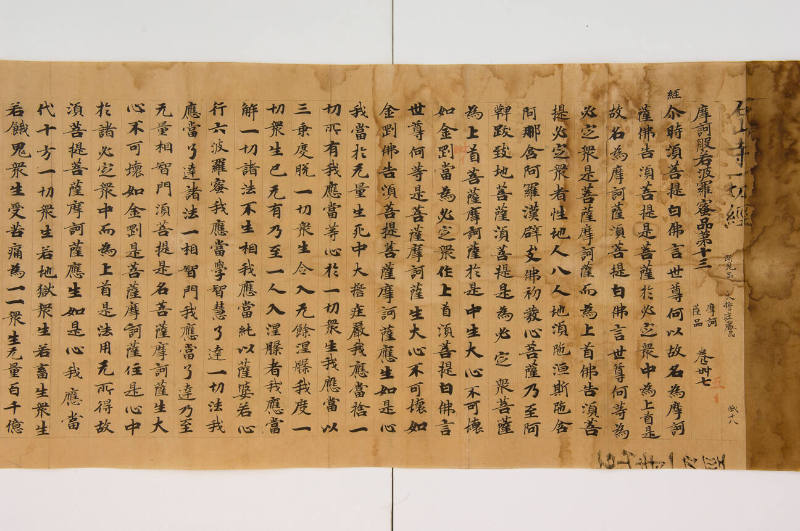 石山寺一切經
卷卅七
摩訶
薩品
摩訶般若波羅蜜品第十三
經 尒時湏菩提白佛言世尊何以故名為摩訶
薩佛告湏菩提是菩薩於必定衆中為上首是
故名為摩訶薩湏菩提白佛言世尊何等為
必定衆是菩薩摩訶薩而為上首佛告湏菩
提必定衆者性地人八人地湏陁洹斯陁含
阿那含阿羅漢辟支佛初發心菩薩乃至阿
鞞跋致地菩薩湏菩提是為必定衆菩薩
為上首菩薩摩訶薩於是中生大心不可壞
如金剛當為必定衆作上首湏菩提白佛言
世尊何等是菩薩摩訶薩生大心不可壞如
金剛佛告湏菩提菩薩摩訶薩應生如是心
我當於无量生死中大誓莊嚴我應當捨一
切所有我應當等心於一切衆生我應當以
三乗度脫一切衆生令入无餘涅槃我度一
切衆生已无有乃至一人入涅槃者我應當
解一切諸法不生相我應當純以薩婆若心
行六波羅蜜我應當學智慧了達一切法我
應當了達諸法一相智門我應當了達乃至
无量相智門湏菩提是名菩薩摩訶薩生大
心不可壞如金剛是菩薩摩訶薩住是心中
於諸必定衆中而為上首是法用无所得故
湏菩提菩薩摩訶薩應生如是心我應當
代十方一切衆生若地獄衆生若畜生衆生
若餓鬼衆生受苦痛為一一衆生无量百千億